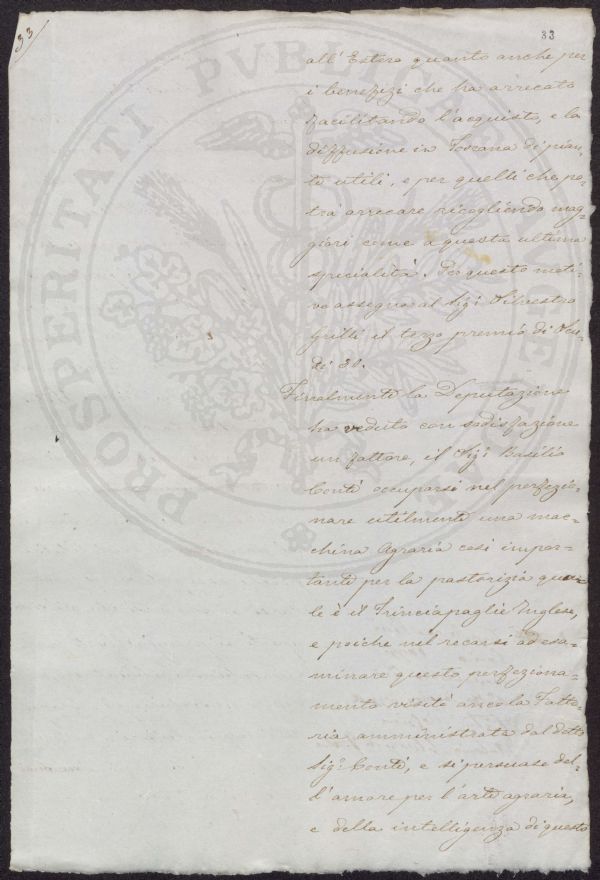 33
33
all' Estero quanto anche per
i benefizi che ha arrecato
facilitando l'acquisto, e la
diffusione in Toscana di pian=
te utili, e per quelli che po=
trà arrecare rivogliendo mag=
giori cure a questa ultima
specialità. Per questo moti=
vo assegna al Sig: Silvestro
Grilli il terzo premio di Scu=
di 30.
Finalmente la Deputazione
ha veduto con sodisfazione
un fattore, il Sig: Basilio
Conti occuparsi nel perfezio=
nare utilmente una mac=
china Agraria così impor=
tante per la pastorizia qua=
le è il Trinciapaglie Inglese,
e poiche nel recarsi ad esa=
minare questo perfeziona=
mento visitò anco la Fatto=
ria amministrata dal detto
Sig: Conti, e si persuase del=
l'amore per l'arte agraria,
e della intelligenza di questo
PROSPERITATI PVBLICAE AVGENDAE